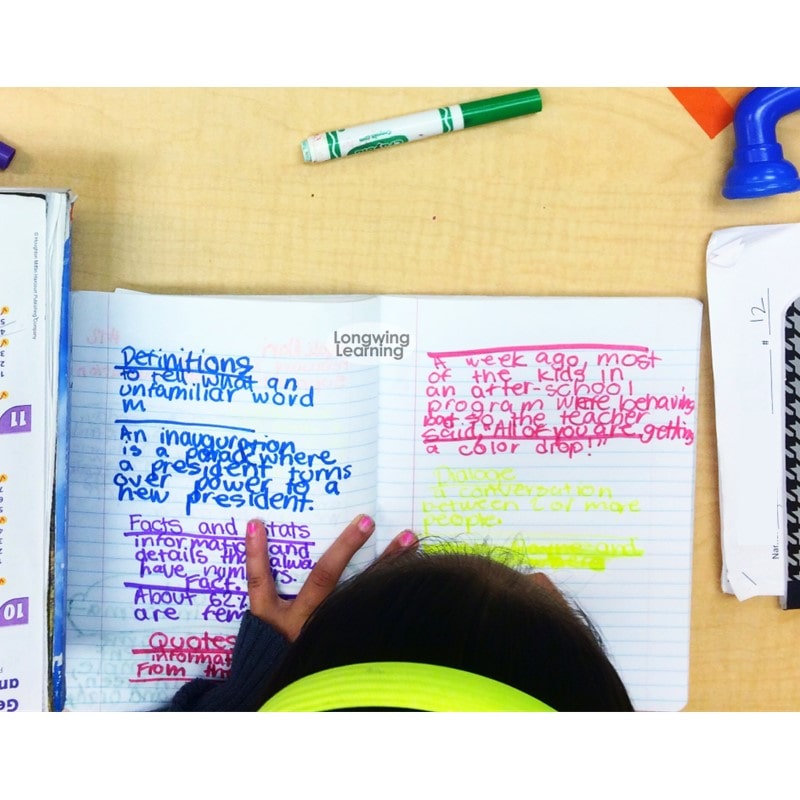 Longwing
Learning
Definitions
to tell what an
unfamiliar word
m
An inauguration
is a parade where
a president turns
over power to a
new president.
Facts and Stats
information and
details that alway
have numbers.
Fact.
About 62%
are fem
Quotes
informat
From th
A week ago, most
of the kids in
an after-school
program were behaving
bad so the teacher
said "All of you are getting
a color drop!"
Dialoge
a conversation
between 2 or more
people.
Crayola
© Houghton Mifflin Harcourt Publishing Company
11
10
# 12
Nar